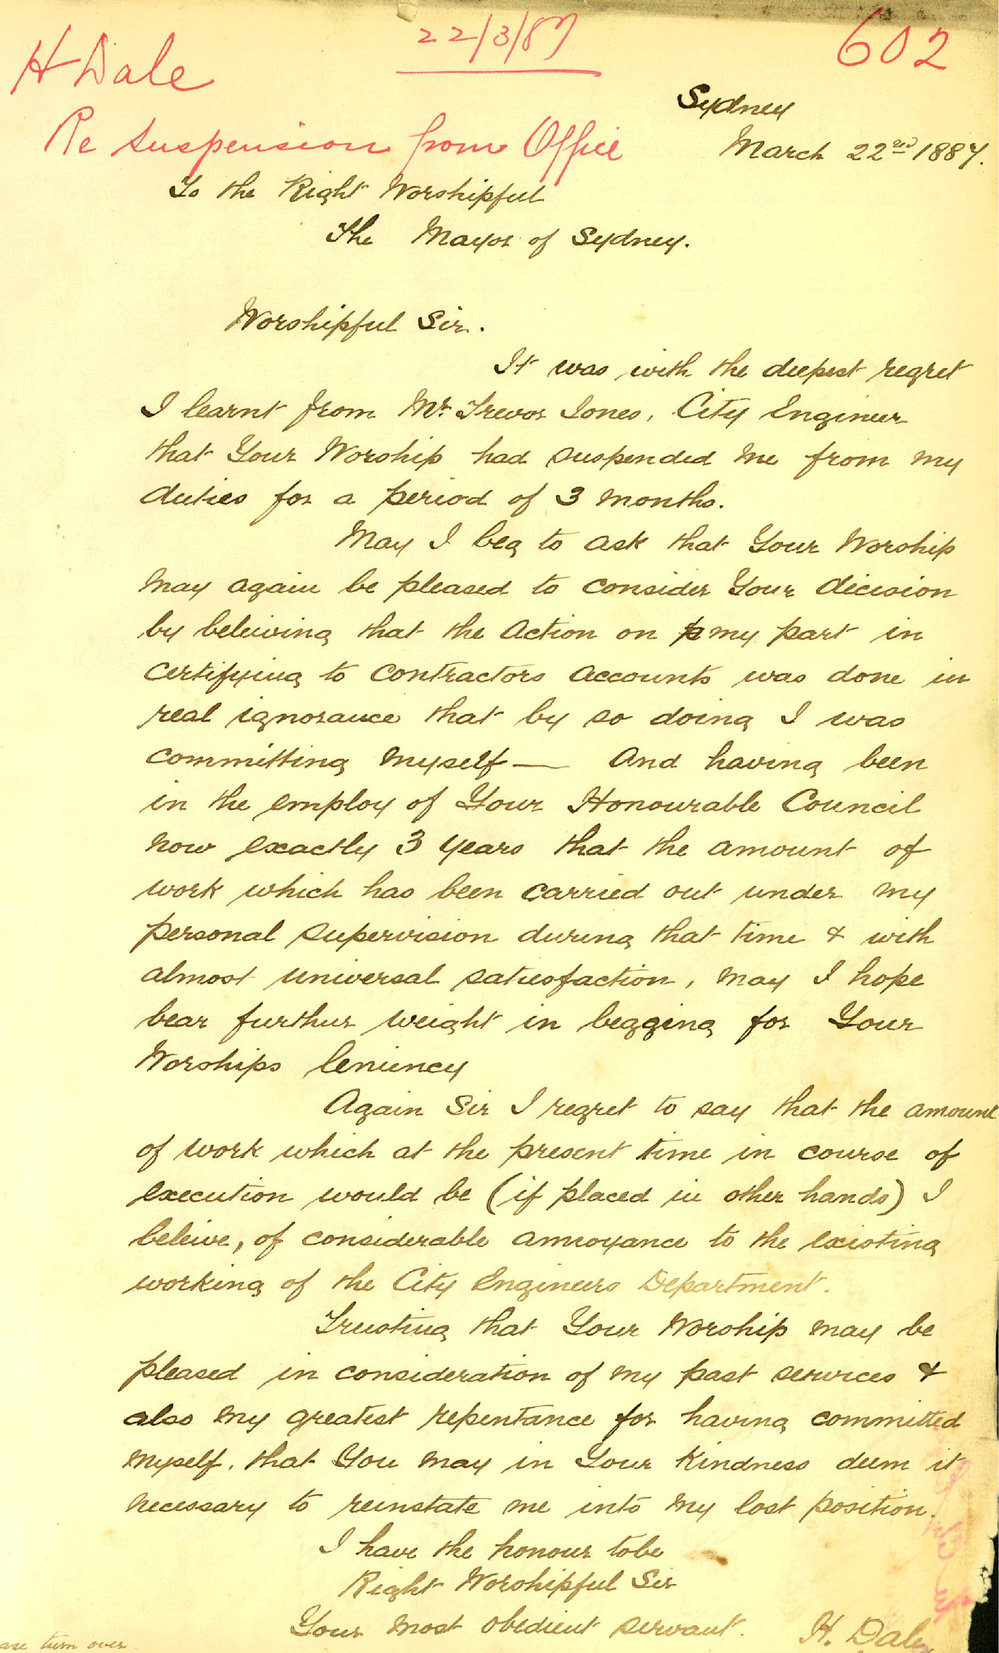 22/3/87
602
H Dale
Re Suspension from Office
Sydney
March 22nd 1887.
To the Right Worshipful
The Mayor of Sydney.
Worshipful Sir.
It was with the deepest regret
I learnt from Mr. Trevor Jones, City Engineer
that Your Worship had suspended me from my
duties for a period of 3 months.
May I beg to ask that Your Worship
may again be pleased to consider Your decision
by beleiving that the Action on my part in
certifying to contractors accounts was done in
real ignorance that by so doing I was
committing myself — And having been
in the employ of Your Honourable Council
now exactly 3 years that the amount of
work which has been carried out under my
personal supervision during that time & with
almost universal satisfaction, may I hope
bear further weight in begging for Your
Worships leniency
Again Sir I regret to say that the amount
of work which at the present time in course of
execution would be (if placed in other hands) I
beleive, of considerable annoyance to the existing
working of the City Engineers Department.
Trusting that Your Worship may be
pleased in consideration of my past services &
also my greatest repentance for having committed
myself, that You may in Your Kindness deem it
necessary to reinstate me into my lost position.
I have the honour to be
Right Worshipful Sir
Your most obedient servant. H. Dale
turn over